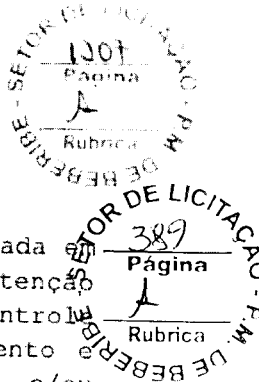 SETOR DE LICITAÇÃO - P.M. DE BEBERIBE
Página
Rubrica
SETOR DE LICITAÇÃO - P.M. DE BEBERIBE
389
Página
Rubrica
ada e
tenção
ntrole
ento e